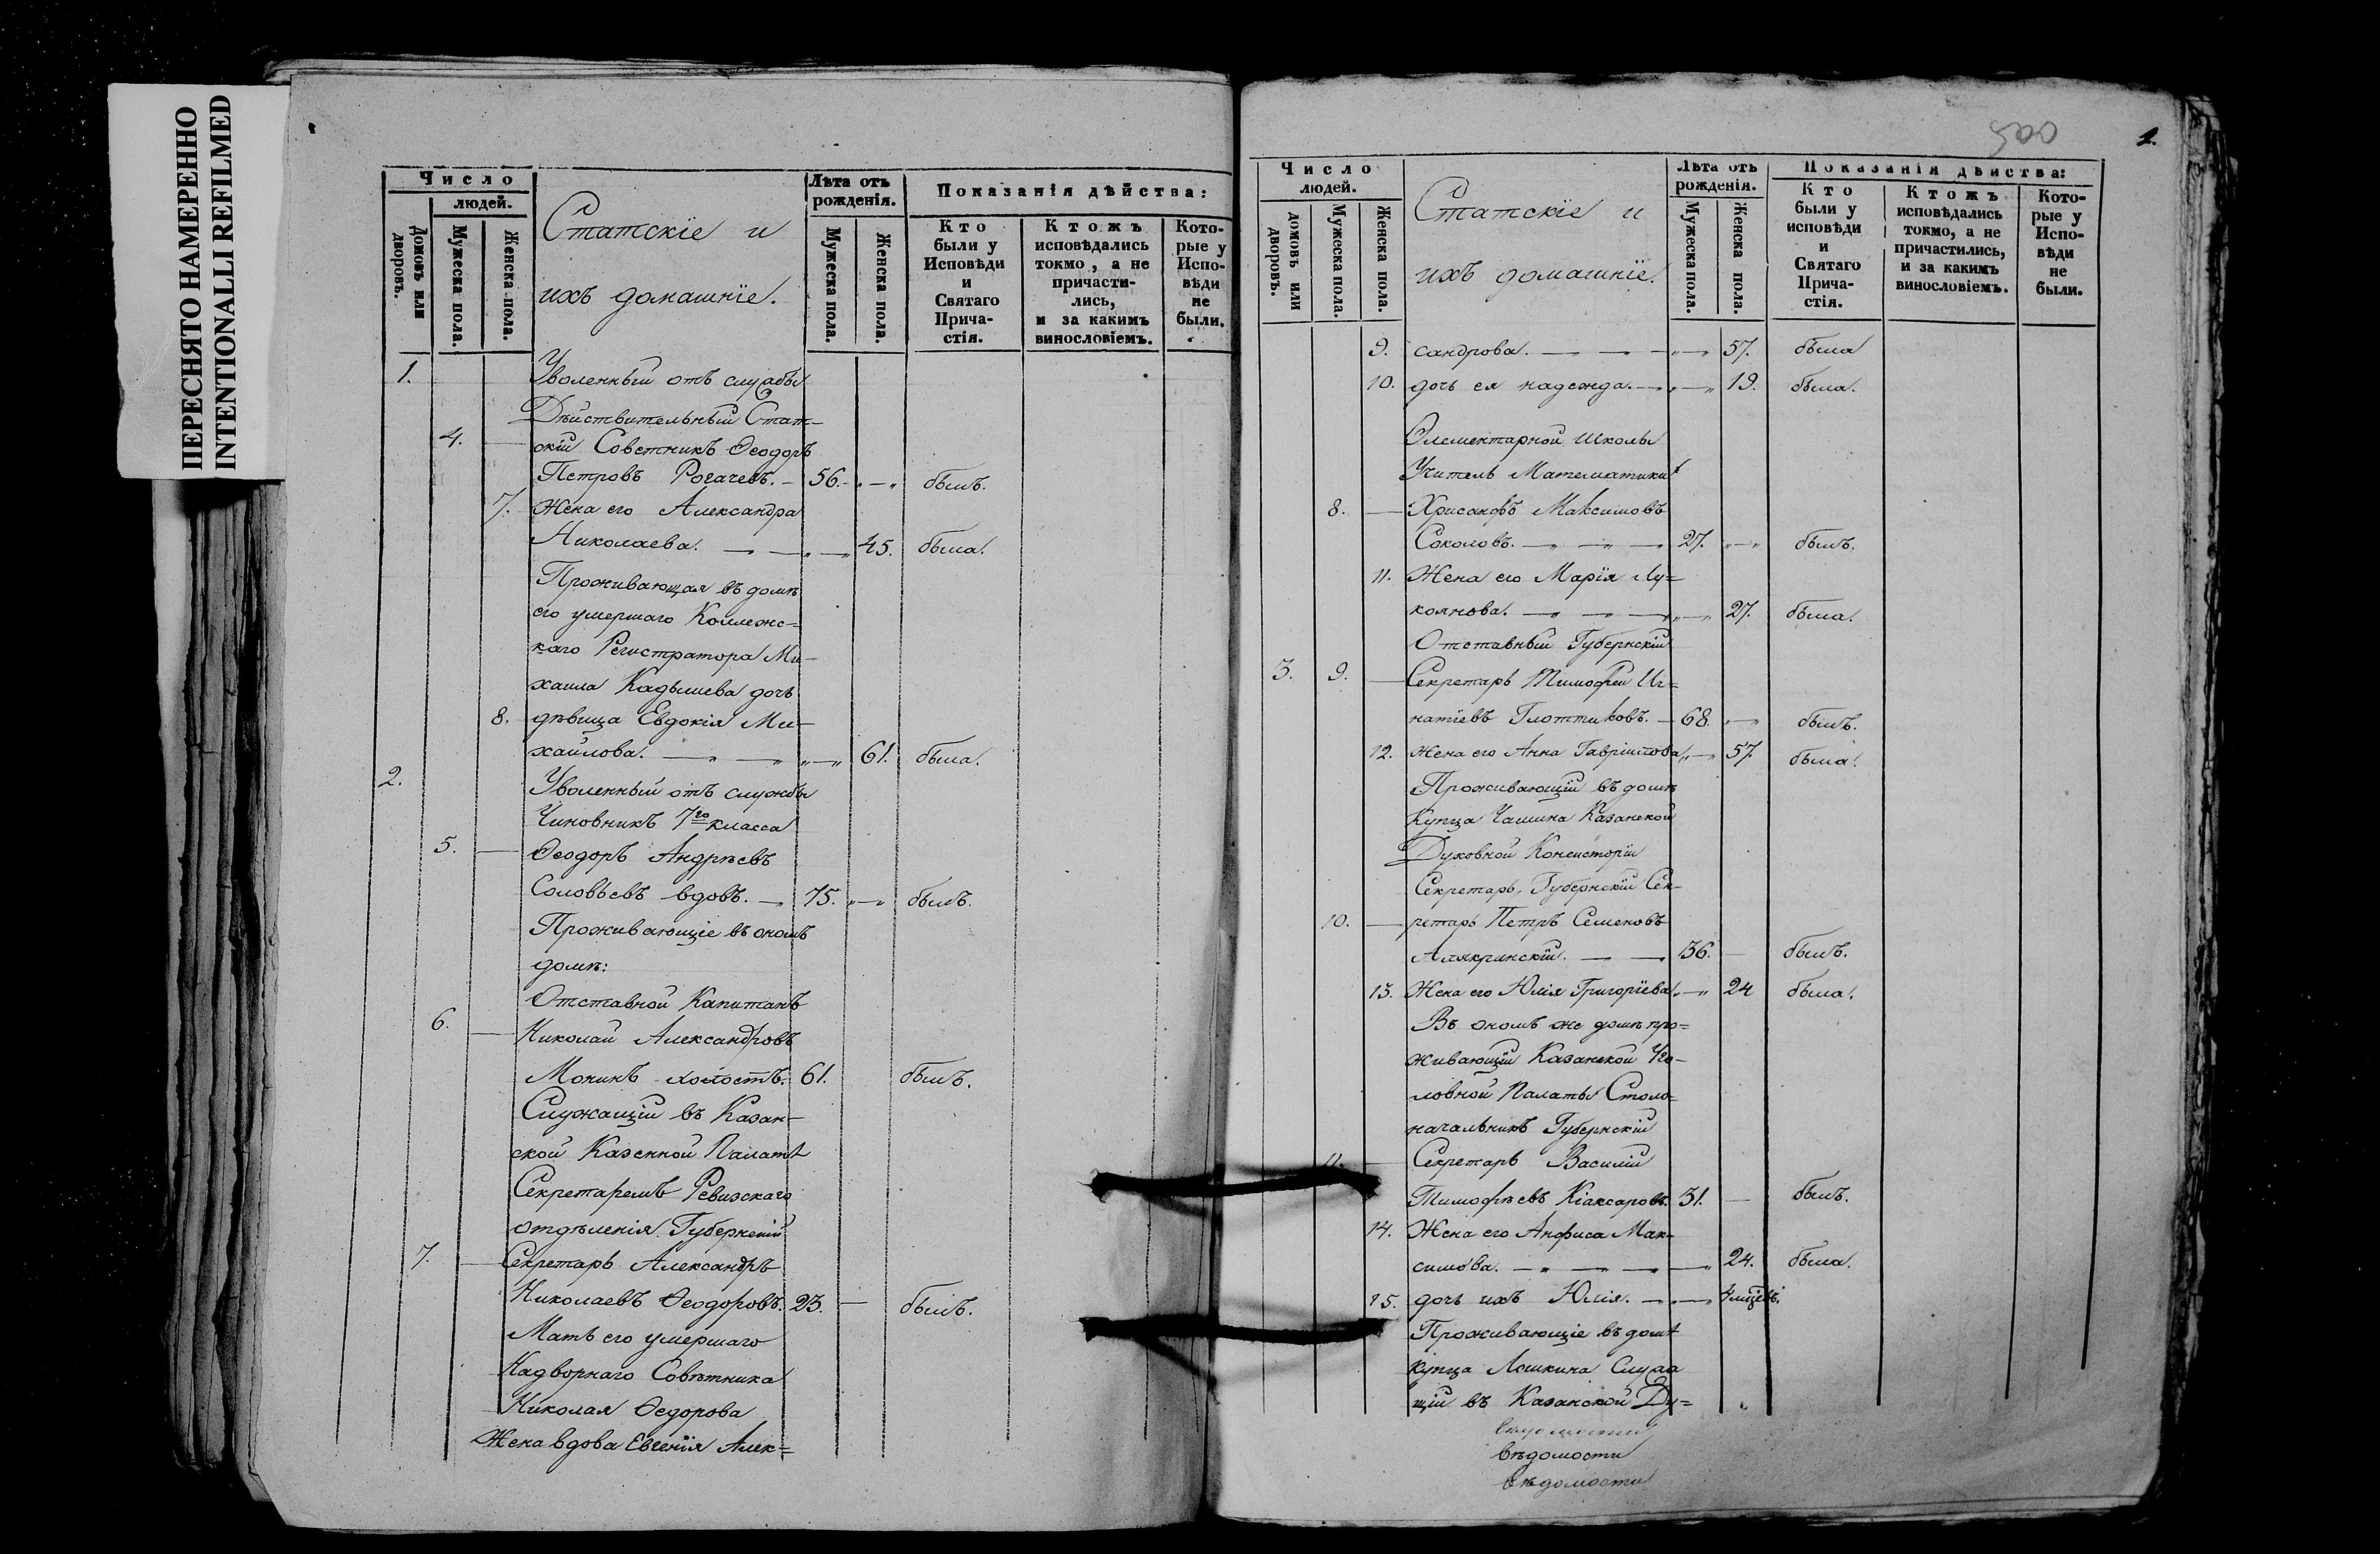 ПЕРЕСНЯТО НАМЕРЕННО
INTENTIONALLI REFILMED
Число
людей.
Домовъ или дворовъ.
Мужеска пола.
Женска пола.
Статскіе и
ихъ домашніе.
Лѣта отъ рожденія.
Мужеска пола.
Женска пола.
Показанія дѣйства:
Кто были у Исповѣди и Святаго Прича-стія.
Ктожъ исповѣдались токмо, а не причасти-лись, и за какимъ винословіемъ.
Кото-рые у Испо-вѣди не были.
1. Уволенный отъ службы
Дѣйствительный Стат-
4. скій Советникъ Ѳеодоръ
Петровъ Рогачевъ. 56. былъ.
7. Жена его Александра
Николаева. 45. была.
Проживающая въ домѣ
его умершаго Коллежс-
каго Регистратора Ми-
хаила Кадышева дочь
8. дѣвица Евдокія Ми-
хайлова. 61. была.
2. Уволенный отъ службы
Чиновникъ 7го класса
5. Ѳеодоръ Андрѣевъ
Соловьевъ вдовъ. 75. былъ.
Проживающіе въ ономъ
домѣ:
Отставной Капитанъ
6. Николай Александровъ
Монинъ холостъ. 61. былъ.
Служащій въ Казан-
ской Казенной Палатѣ
Секретаремъ Ревизскаго
отдѣленія Губернскій
7. Секретарь Александръ
Николаевъ Ѳеодоровъ. 23. былъ.
Мать его умершаго
Надворнаго Совѣтника
Николая Ѳедорова
Жена вдова Евгенія Алек=
500
1.
Число
людей.
домовъ или дворовъ.
Мужеска пола.
Женска пола.
Статскіе и
ихъ домашніе.
Лѣта отъ рожденія.
Мужеска пола.
Женска пола.
Показанія дѣйства:
Кто были у исповѣди и Святаго Прича-стія.
Ктожъ исповѣдались токмо, а не причастились, и за какимъ винословіемъ.
Кото-рые у Испо-вѣди не были.
9. сандрова. 57. была
10. дочь ея надежда. 19. была.
Элементарной школы
Учитель Математики
8. Хрисанфъ Максимовъ
Соколовъ. 27. былъ.
11. Жена его Марія Лу=
коянова. 27. была.
Отставный Губернскій
3. 9. Секретарь Тимофей Иг=
натіевъ Глоттиковъ. 68. былъ.
12. Жена его Анна Гавріилова 57. была.
Проживающій въ домѣ
Купца Чашина Казанской
Духовной Консисторіи
Секретарь, Губернскій Сек-
10. ретарь Петръ Семеновъ
Алякринскій. 36. былъ.
13. Жена его Юлія Григоріева. 24 была.
Въ ономъ же домѣ про=
живающій Казанской Уго-
ловной Палаты Столо=
начальникъ Губернскій
11. Секретарь Василій
Тимофѣевъ Кіаксаровъ. 31. былъ.
14. Жена его Анфиса Мак-
симова. 24. была.
15. дочь ихъ Юлія. 4 мцѣвъ.
Проживающіе въ домѣ
купца Лошкина Служа
щій въ Казанской Ду=
вѣдомости
вѣдомости